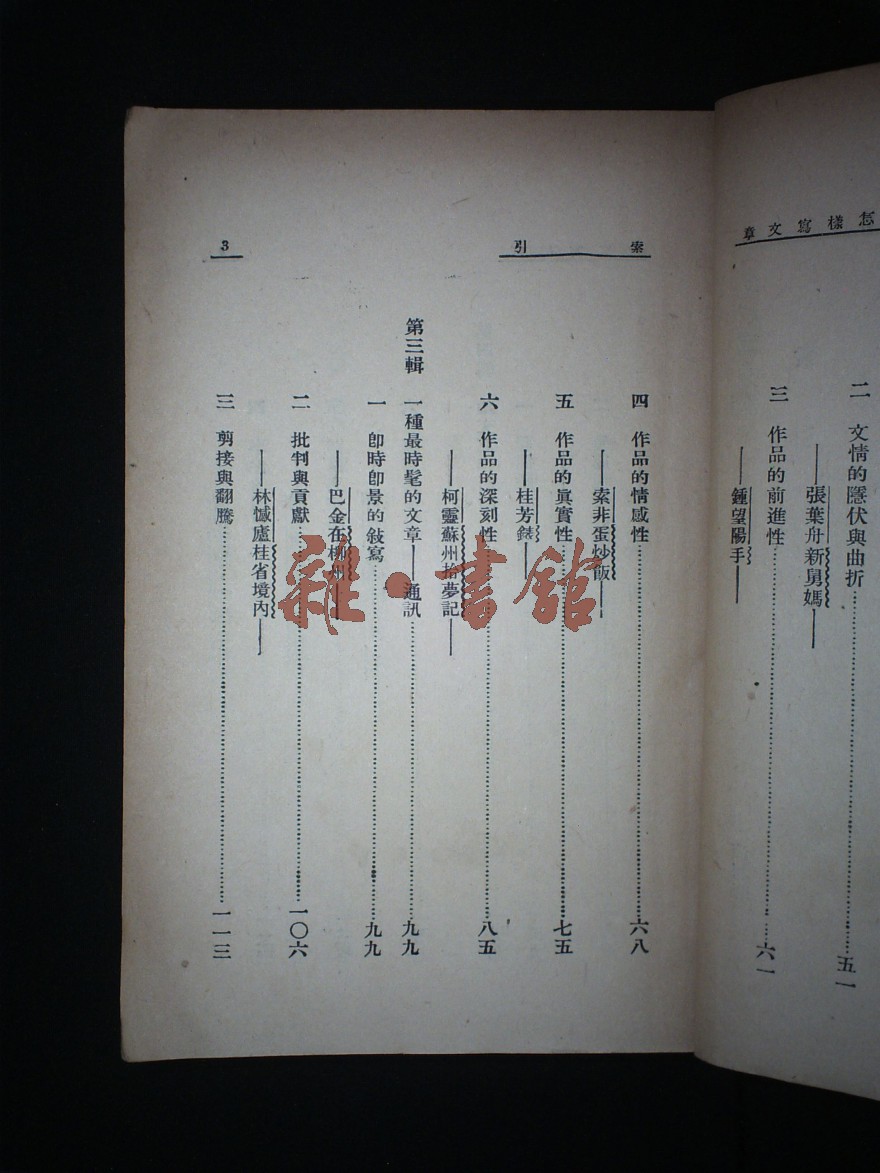 怎樣寫文章
二　文情的隱伏與曲折……五一
──張葉舟新舅媽──
三　作品的前進性……六一
──鍾望陽手──
索引
3
四　作品的情感性……六八
──索非蛋炒飯──
五　作品的眞實性……七五
──桂芳錶──
六　作品的深刻性……八五
──柯靈蘇州拾夢記──
第三輯　一種最時髦的文章──通訊……九九
一　卽時卽景的敍寫……九九
──巴金在柳州──
二　批判與貢獻……一〇六
──林憾廬桂省境內──
三　剪接與翻騰……一一三
雜·書館